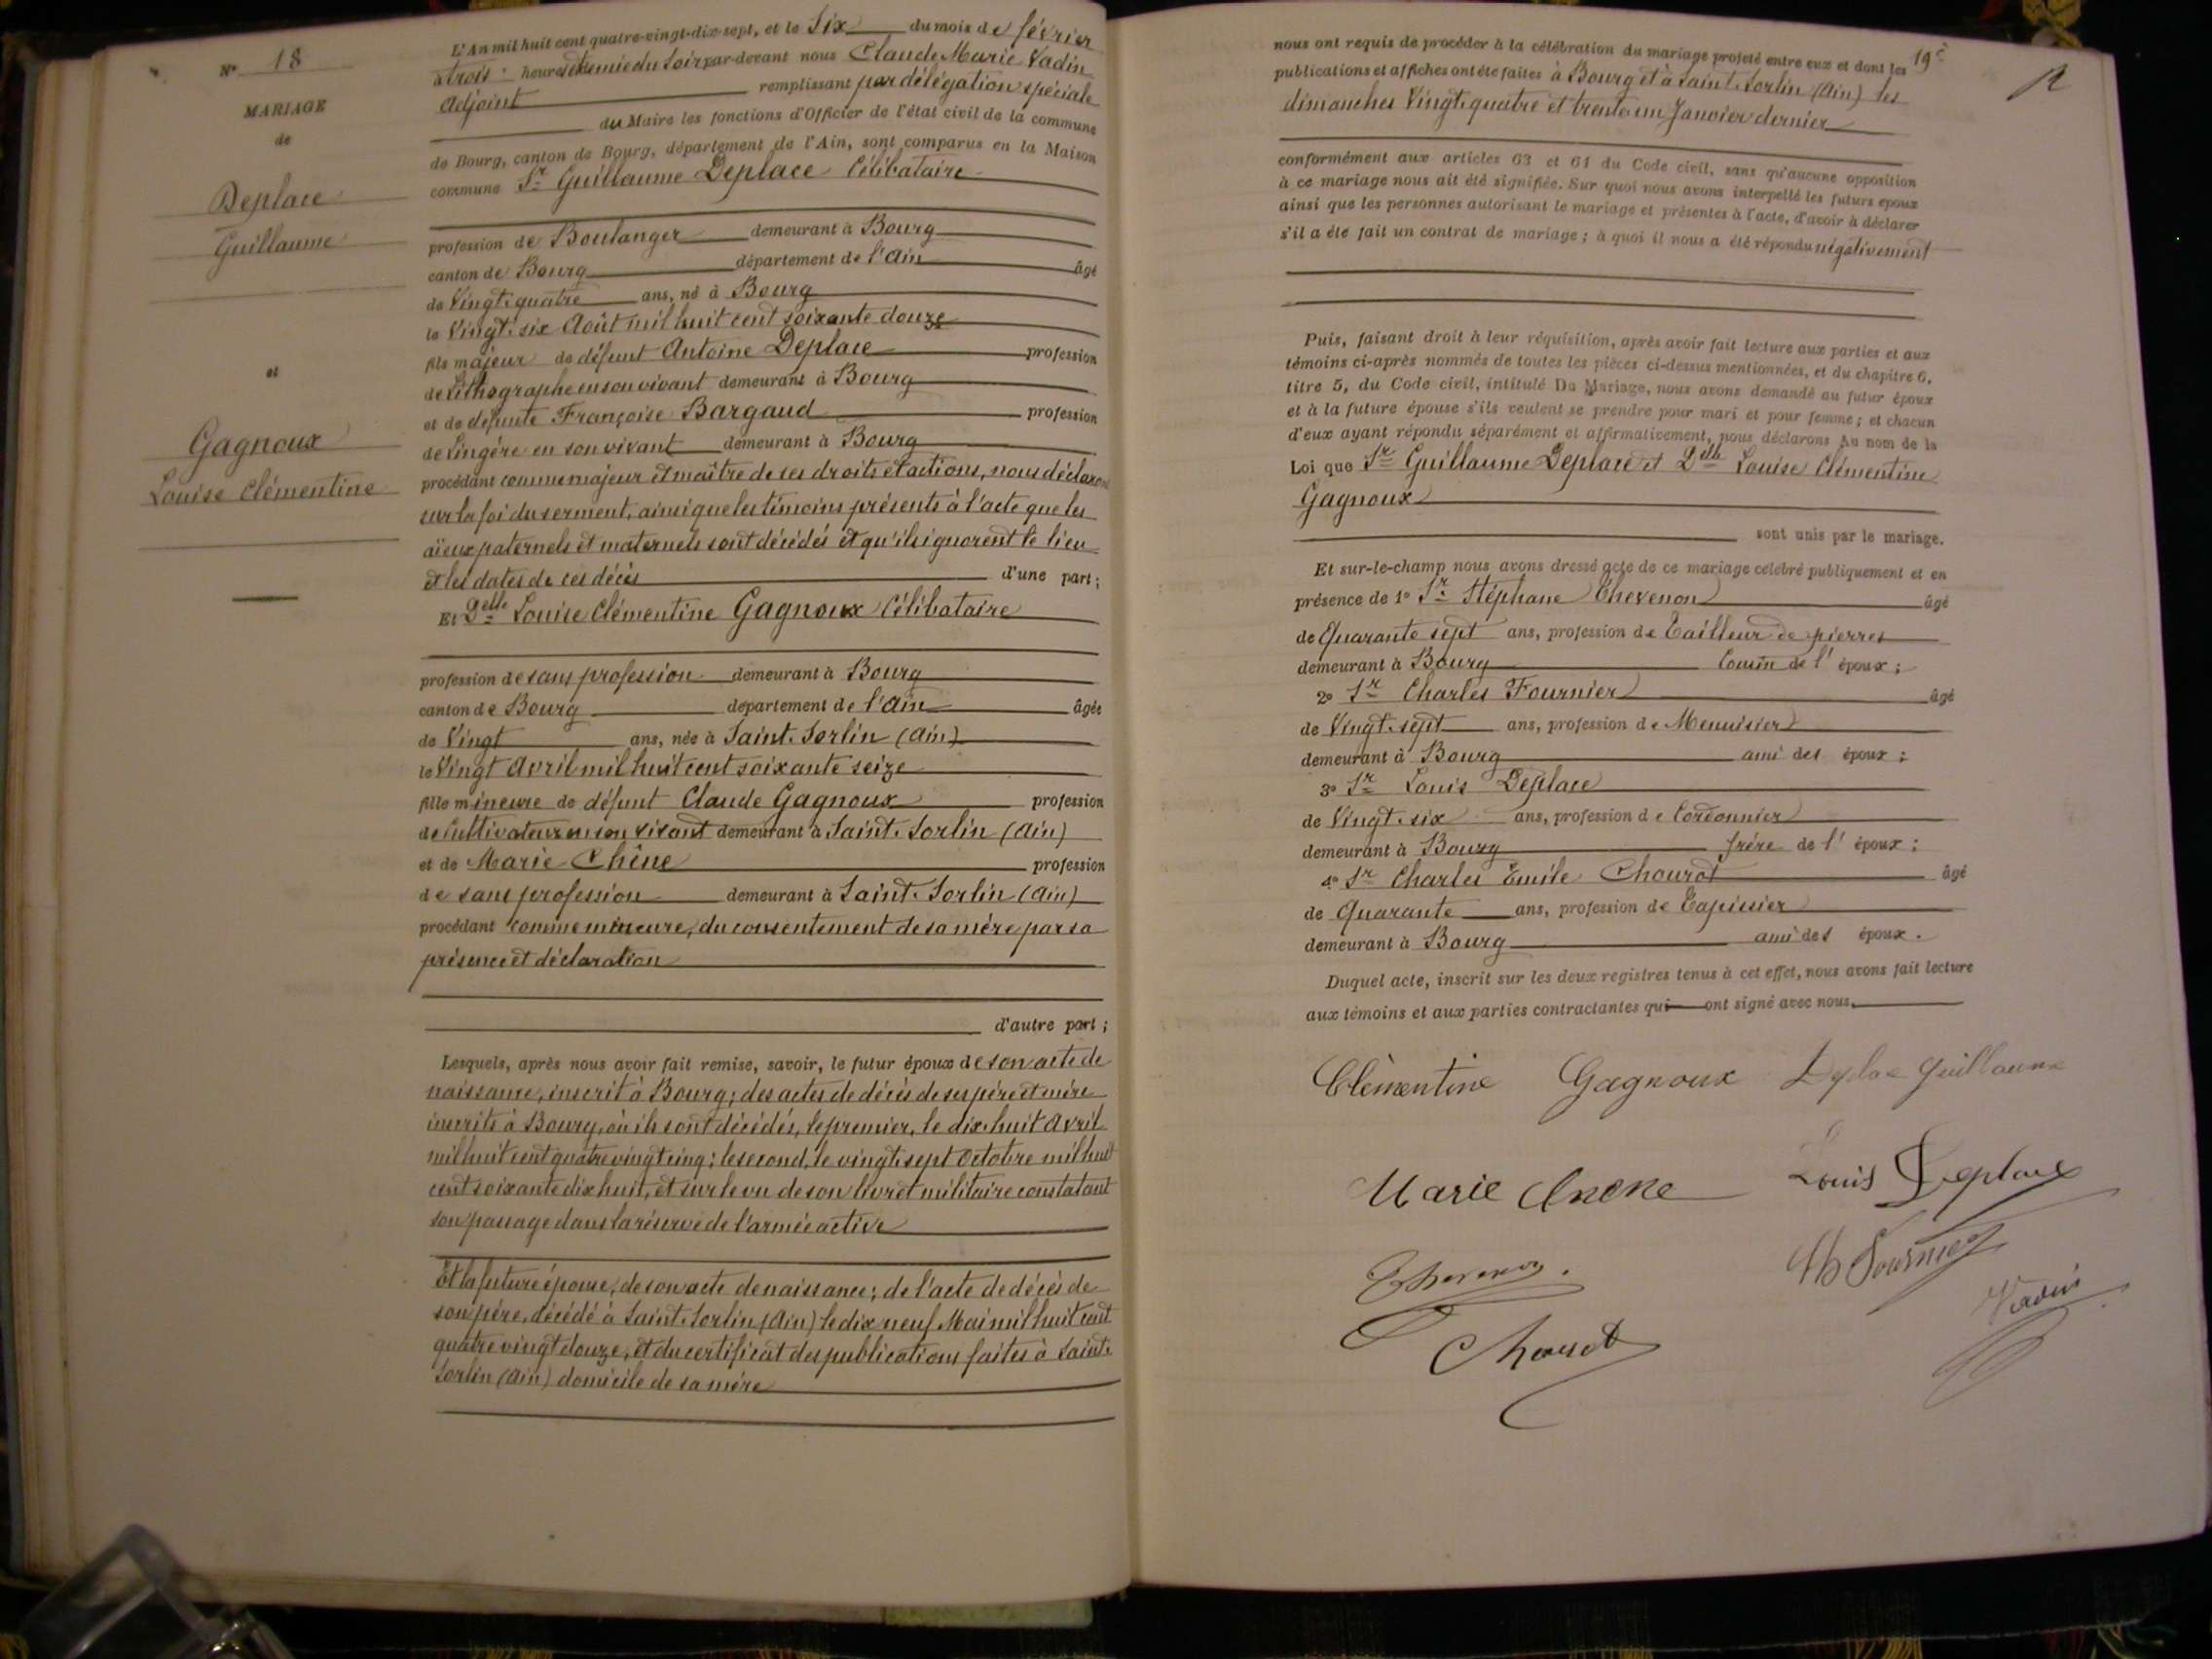 N° 18
MARIAGE
de
Deplace
Guillaume
et
Gagnoux
Louise Clémentine
L'An mil huit cent quatre-vingt-dix-sept, et le Six du mois de février
à trois heures et demie du Soir par-devant nous Claude Marie Vadin
Adjoint remplissant par délégation spéciale
du Maire les fonctions d'Officier de l'état civil de la commune
de Bourg, canton de Bourg, département de l'Ain, sont comparus en la Maison
commune Sr Guillaume Deplace Célibataire
profession de Boulanger demeurant à Bourg
canton de Bourg département de l'Ain âgé
de Vingt-quatre ans, né à Bourg
le Vingt-six Août mil huit cent soixante douze
fils majeur de défunt Antoine Deplace profession
de Lithographe en son vivant demeurant à Bourg
et de défunte Françoise Bargaud profession
de Lingère en son vivant demeurant à Bourg
procédant comme majeur et maître de ses droits et actions, nous déclarant
sur la foi du serment, ainsi que les témoins présents à l'acte que les
aïeux paternels et maternels sont décédés et qu'ils ignorent le lieu
et les dates de ces décès d'une part ;
Et Delle Louise Clémentine Gagnoux Célibataire
profession de sans profession demeurant à Bourg
canton de Bourg département de l'Ain âgée
de Vingt ans, née à Saint-Sorlin (Ain)
le Vingt Avril mil huit cent soixante seize
fille mineure de défunt Claude Gagnoux profession
de Cultivateur en son vivant demeurant à Saint-Sorlin (Ain)
et de Marie Chêne profession
de sans profession demeurant à Saint-Sorlin (Ain)
procédant comme mineure, du consentement de sa mère par sa
présence et déclaration
d'autre part ;
Lesquels, après nous avoir fait remise, savoir, le futur époux de son acte de
naissance, inscrit à Bourg ; des actes de décès de ses père et mère
inscrits à Bourg, où ils sont décédés, le premier, le dix-huit Avril
mil huit cent quatre vingt cinq ; le second, le vingt-sept Octobre mil huit
cent soixante dix huit, et sur le vu de son livret militaire constatant
son passage dans la réserve de l'armée active
Et la future épouse, de son acte de naissance ; de l'acte de décès de
son père, décédé à Saint-Sorlin (Ain) le dix neuf Mai mil huit cent
quatre vingt douze, et du certificat des publications faites à Saint-
Sorlin (Ain) domicile de sa mère
19e
nous ont requis de procéder à la célébration du mariage projeté entre eux et dont les
publications et affiches ont été faites à Bourg et à Saint-Sorlin (Ain) les
dimanches Vingt-quatre et trente un Janvier dernier
conformément aux articles 63 et 64 du Code civil, sans qu'aucune opposition
à ce mariage nous ait été signifiée. Sur quoi nous avons interpellé les futurs époux
ainsi que les personnes autorisant le mariage et présentes à l'acte, d'avoir à déclarer
s'il a été fait un contrat de mariage ; à quoi il nous a été répondu négativement
Puis, faisant droit à leur réquisition, après avoir fait lecture aux parties et aux
témoins ci-après nommés de toutes les pièces ci-dessus mentionnées, et du chapitre 6,
titre 5, du Code civil, intitulé Du Mariage, nous avons demandé au futur époux
et à la future épouse s'ils veulent se prendre pour mari et pour femme ; et chacun
d'eux ayant répondu séparément et affirmativement, nous déclarons Au nom de la
Loi que Sr Guillaume Deplace et Delle Louise Clémentine
Gagnoux
sont unis par le mariage.
Et sur-le-champ nous avons dressé acte de ce mariage célébré publiquement et en
présence de 1° Sr Stéphane Chevenon âgé
de Quarante sept ans, profession de Tailleur de pierres
demeurant à Bourg Cousin de l'époux ;
2° Sr Charles Fournier âgé
de Vingt-sept ans, profession de Menuisier
demeurant à Bourg ami des époux ;
3° Sr Louis Deplace
de Vingt-six ans, profession de Cordonnier
demeurant à Bourg frère de l'époux ;
4° Sr Charles Emile Chourot âgé
de Quarante ans, profession de Tapissier
demeurant à Bourg ami des époux.
Duquel acte, inscrit sur les deux registres tenus à cet effet, nous avons fait lecture
aux témoins et aux parties contractantes qui ont signé avec nous.
Clémentine Gagnoux Deplace Guillaume
Marie Chene Louis Deplace
Chevenon Ch Fournier
Vadin
Chourot